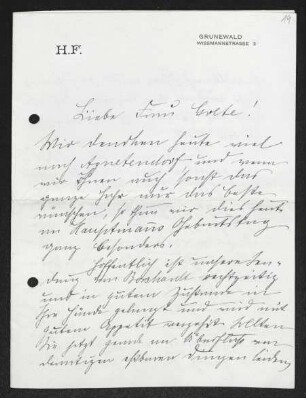 19
GRUNEWALD
WISSMANNSTRASSE 2
H.F.
Liebe Frau Bolte!
Wir denken heute viel
nach Agnetendorf und wenn
wir Ihnen auch sonst das
ganze Jahr nur das beste
wünschen, so thun wir dies heute
an Hauptmanns Geburtstag
ganz besonders.
Hoffentlich ist unsere Sen-
dung von Borchardt rechtzeitig
und in gutem Zustande in
Ihre Hände gelangt und wird mit
gutem Appetit verzehrt. Sollten
Sie jetzt gerade an Überfluss von
derartigen essbaren Dingen leiden,